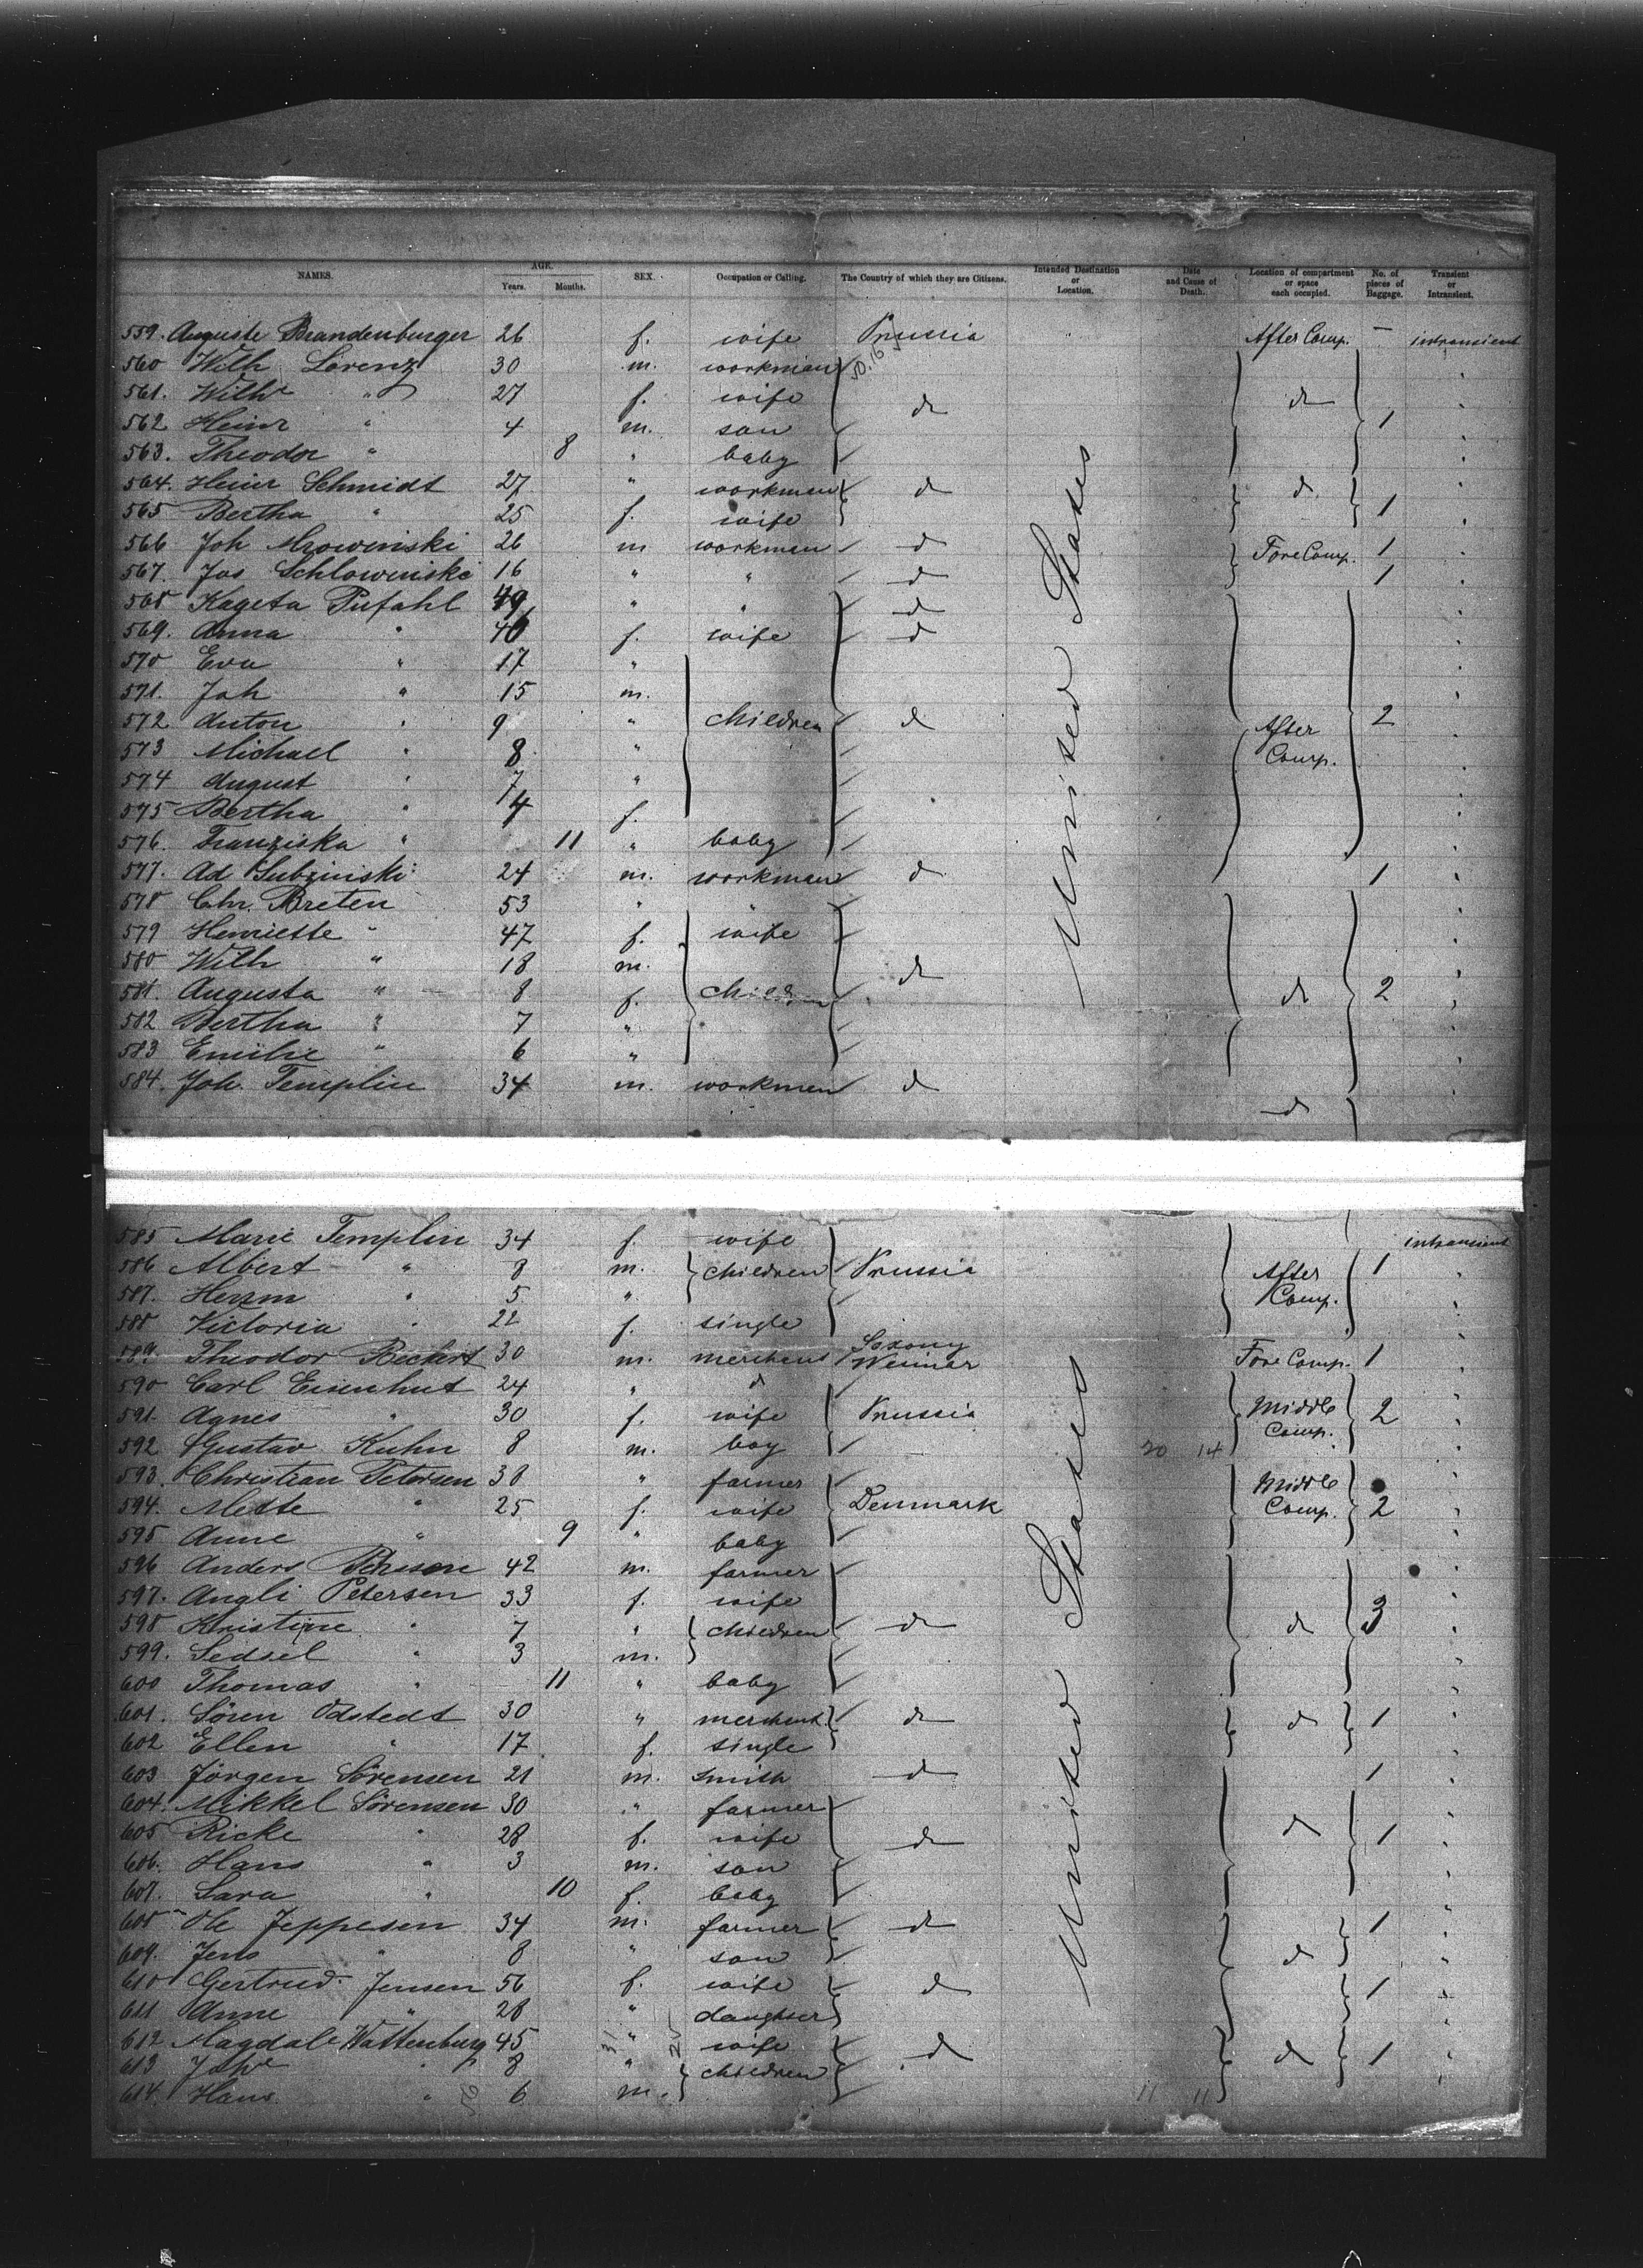 NAMES. AGE. Years. Months. SEX. Occupation or Calling. The Country of which they are Citizens. Intended Destination or Location. Date and Cause of Death. Location of compartment or space each occupied. No. of pieces of Baggage. Transient or Intransient.
559. Auguste Brandenburger 26 f. wife Prussia After Comp. – intransient
560 Wilh Lorenz 30 m. workman
561. Wilhe " 27 f. wife d d
562 Heinr " 4 m. son 1
563. Theodor " 8 " baby
564. Heinr Schmidt 27 " workman d d
565 Bertha " 25 f. wife 1
566 Joh Mrowinski 26 m workman d Fore Comp. 1
567. Jos Schlowinski 16 " " d 1
568 Kageta Pufahl 49 " " d
569. Anna " 40 f. wife d
570 Eva " 17 "
571. Joh " 15 m.
572 Anton " 9 " children d After 2
573 Michael " 8 " Comp.
574 August " 7 "
575 Bertha " 4 f.
576. Franziska " 11 " baby
577. Ad Subzinski 24 m. workman d 1
578 Chr. Breten 53 " "
579 Henriette " 47 f. wife
580 Wilh " 18 m. d
581. Augusta " 8 f. children d 2
582 Bertha " 7 "
583 Emilie " 6 "
584. Joh. Templin 34 m. workman d
d
United States
585 Marie Templin 34 f. wife intransient
586 Albert " 8 m. children Prussia After 1
587. Herrm " 5 " Comp.
588 Victoria " 22 f. single
589. Theodor Beckert 30 m. merchant Saxony Weimar Fore Comp. 1
590 Carl Eisenhut 24 " d
591. Agnes " 30 f. wife Prussia Middle Comp. 2
592 Gustav Kuhn 8 m. boy 20 14
593. Christian Petersen 38 " farmer Middle
594. Mette " 25 f. wife Denmark Comp. 2
595 Anne " 9 " baby
596 Anders 42 m. farmer
597. Angli Petersen 33 f. wife
598 Kristine " 7 " children d d 3
599. Sedsel " 3 m.
600 Thomas " 11 " baby
601. Sören Odstedt 30 " merchant d d 1
602 Ellen " 17 f. single
603 Jörgen Sörensen 21 m. smith d 1
604. Mikkel Sörensen 30 " farmer
605 Ricke " 28 f. wife d d 1
606. Hans " 3 m. son
607. Sara " 10 f. baby
608 Ole Jeppesen 34 m. farmer d 1
609. Jens " 8 " son d
610 Gertrud Jensen 56 f. wife d 1
611 Anne " 28 " daughter
612 Magdale Wattenburg 45 " wife d d 1
613 " 8 " children
614. Hans " 6 m. 11 11
United States